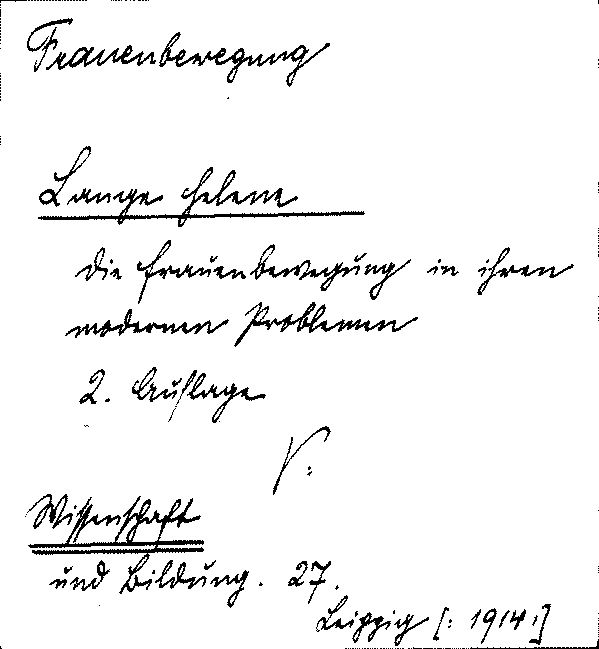 Frauenbewegung
Lange Helene
Die Frauenbewegung in ihren
modernen Problemen
2. Auflage
V:
Wissenschaft
und Bildung. 27.
Leipzig [: 1914 :]